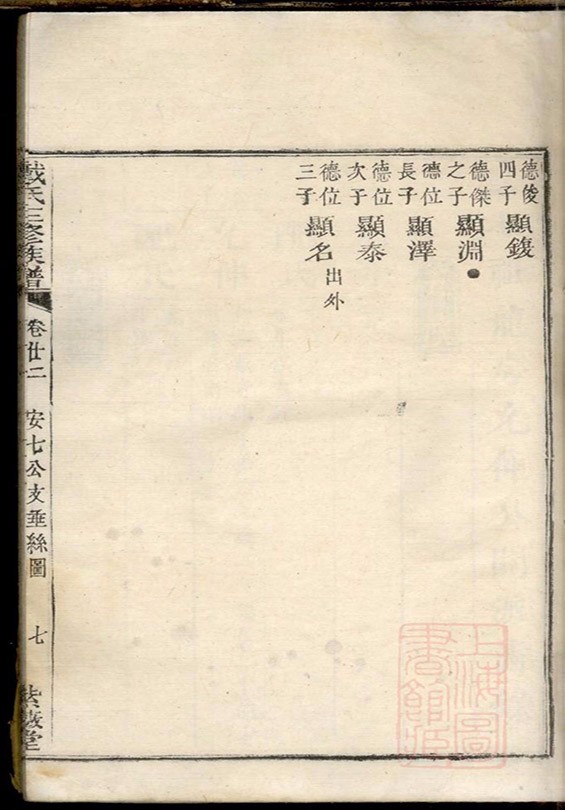 德俊四子顯鍑
德傑之子顯淵
德位長子顯澤
德位次子顯泰
德位三子顯名出外
戴氏三修族譜
卷廿二
安七公支垂絲圖
七
紫薇堂
上海圖書館藏